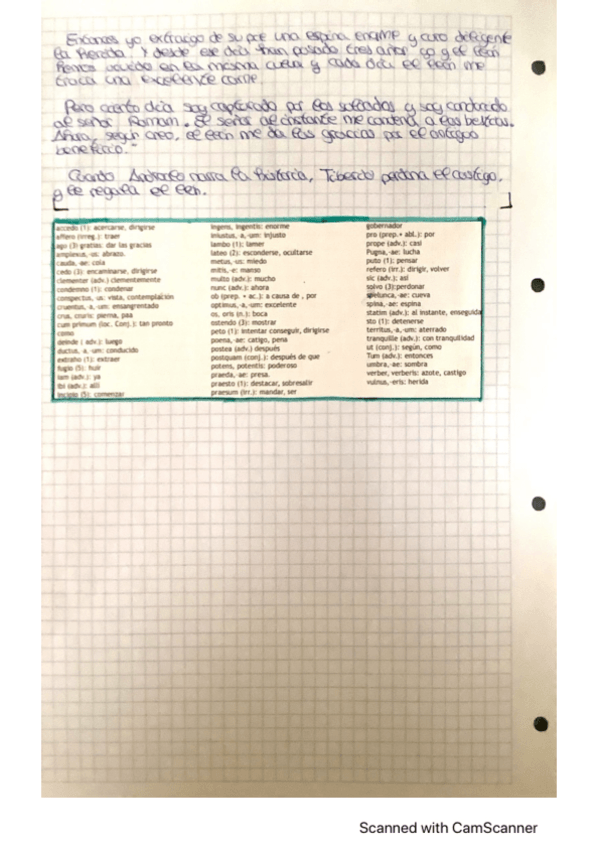 Entonces yo extraigo de su pie una espina enorme y curo diligente
la herida. Y desde ese día han pasado tres años: yo y el león
hemos vivido en la misma cueva y cada día el león me
traía una excelente carne.
Pero cierto día soy capturado por los soldados y soy conducido
al señor Romam. El señor al instante me condena a las bestias.
Ahora, según creo, el león me da las gracias por el antiguo
beneficio."
Cuando Androcles narra la historia, Tiberio perdona el castigo,
y le regala el león.
accedo (1): acercarse, dirigirse
affero (irreg.): traer
ago (3) gratias: dar las gracias
amplexus, -us: abrazo.
cauda, -ae: cola
cedo (3): encaminarse, dirigirse
clementer (adv.) clementemente
condemno (1): condenar
conspectus, -us: vista, contemplación
cruentus, a, -um: ensangrentado
crus, cruris: pierna, pata
cum primum (loc. Conj.): tan pronto
como
deinde ( adv.): luego
ductus, -a, -um: conducido
extraho (1): extraer
fugio (3): huir
iam (adv.): ya
ibi (adv.): allí
incipio (3): comenzar
ingens, ingentis: enorme
iniustus, a, -um: injusto
lambo (1): lamer
lateo (2): esconderse, ocultarse
metus, -us: miedo
mitis, -e: manso
multo (adv.): mucho
nunc (adv.): ahora
ob (prep. + ac.): a causa de , por
optimus,-a,-um: excelente
os, oris (n.): boca
ostendo (3): mostrar
peto (1): intentar conseguir, dirigirse
poena, -ae: catigo, pena
postea (adv.) después
postquam (conj.): después de que
potens, potentis: poderoso
praeda, -ae: presa.
praesto (1): destacar, sobresalir
praesum (irr.): mandar, ser
gobernador
pro (prep.+ abl.): por
prope (adv.): casi
Pugna, -ae: lucha
puto (1): pensar
refero (irr.): dirigir, volver
sic (adv.): así
solvo (3):perdonar
spelunca, -ae: cueva
spina, -ae: espina
statim (adv.): al instante, enseguida
sto (1): detenerse
territus,-a, -um: aterrado
tranquille (adv.): con tranquilidad
ut (conj.): según, como
Tum (adv.): entonces
umbra, -ae: sombra
verber, verberis: azote, castigo
vulnus, -eris: herida
Scanned with CamScanner